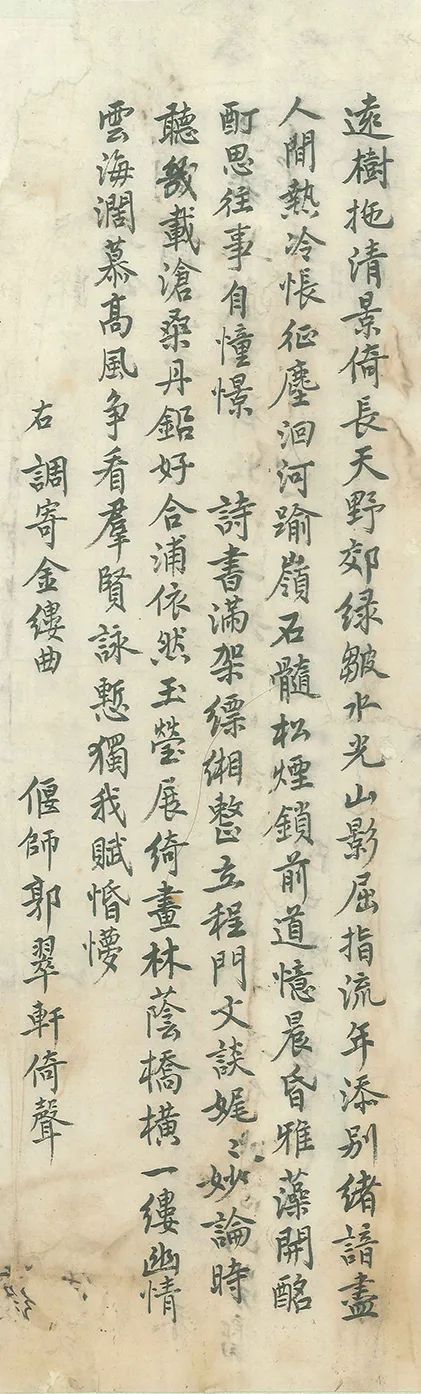 遠樹拖清景倚長天野郊绿皺水光山影屈指流年添別緒諳盡
人間熱冷悵征塵洄河踰嶺石髓松煙鎖前道憶晨昏雅藻開酩
酊思往事自憧憬　詩書滿架縹緗整立程門文談娓〻妙論時
聽幾載滄桑丹鉛好合浦依然玉瑩展綺畫林蔭橋橫一縷幽情
雲海濶慕髙風争看羣賢詠慙獨我賦惛懜
右調寄金縷曲　偃師郭翠軒倚聲